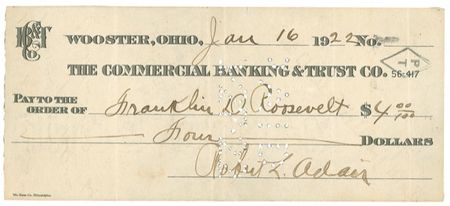 CB&T Co.
WOOSTER, OHIO, Jan 16 1922 No.
P T
THE COMMERCIAL BANKING & TRUST CO. 56-417
PAY TO THE ORDER OF Franklin D. Roosevelt $4 00/100
Four DOLLARS
Robt L. Adair